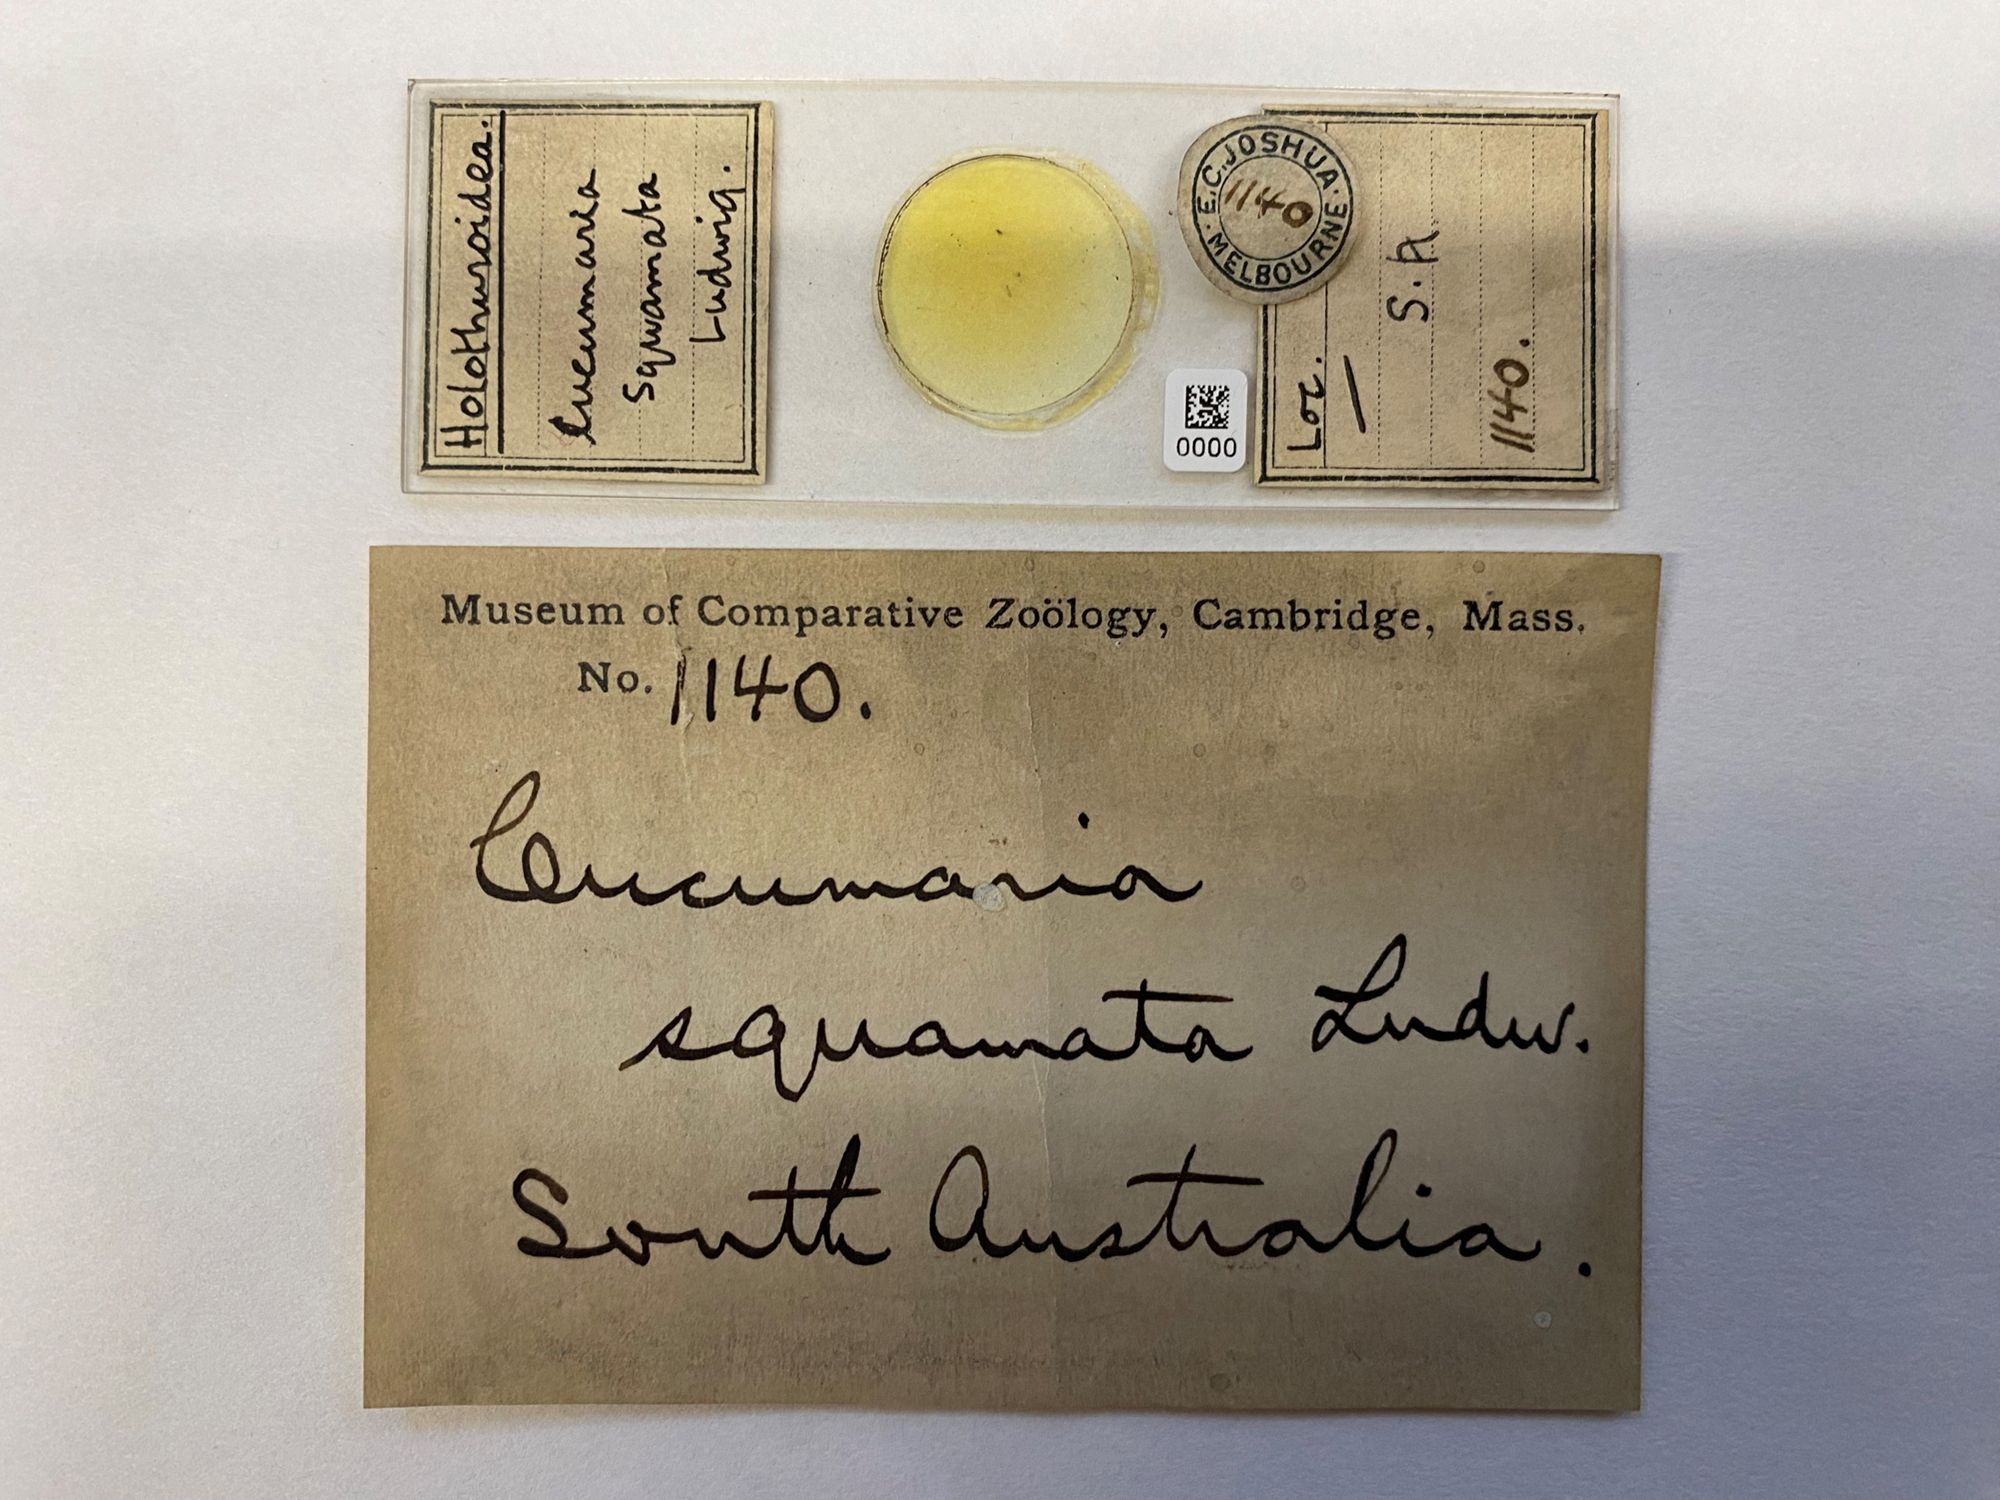 Holothuroidea.
Cucumaria
Squamata
Ludwig.
E. C. JOSHUA
1140
MELBOURNE
0000
Loc.
S. A
1140.
Museum of Comparative Zoölogy, Cambridge, Mass.
No. 1140.
Cucumaria
squamata Ludw.
South Australia.